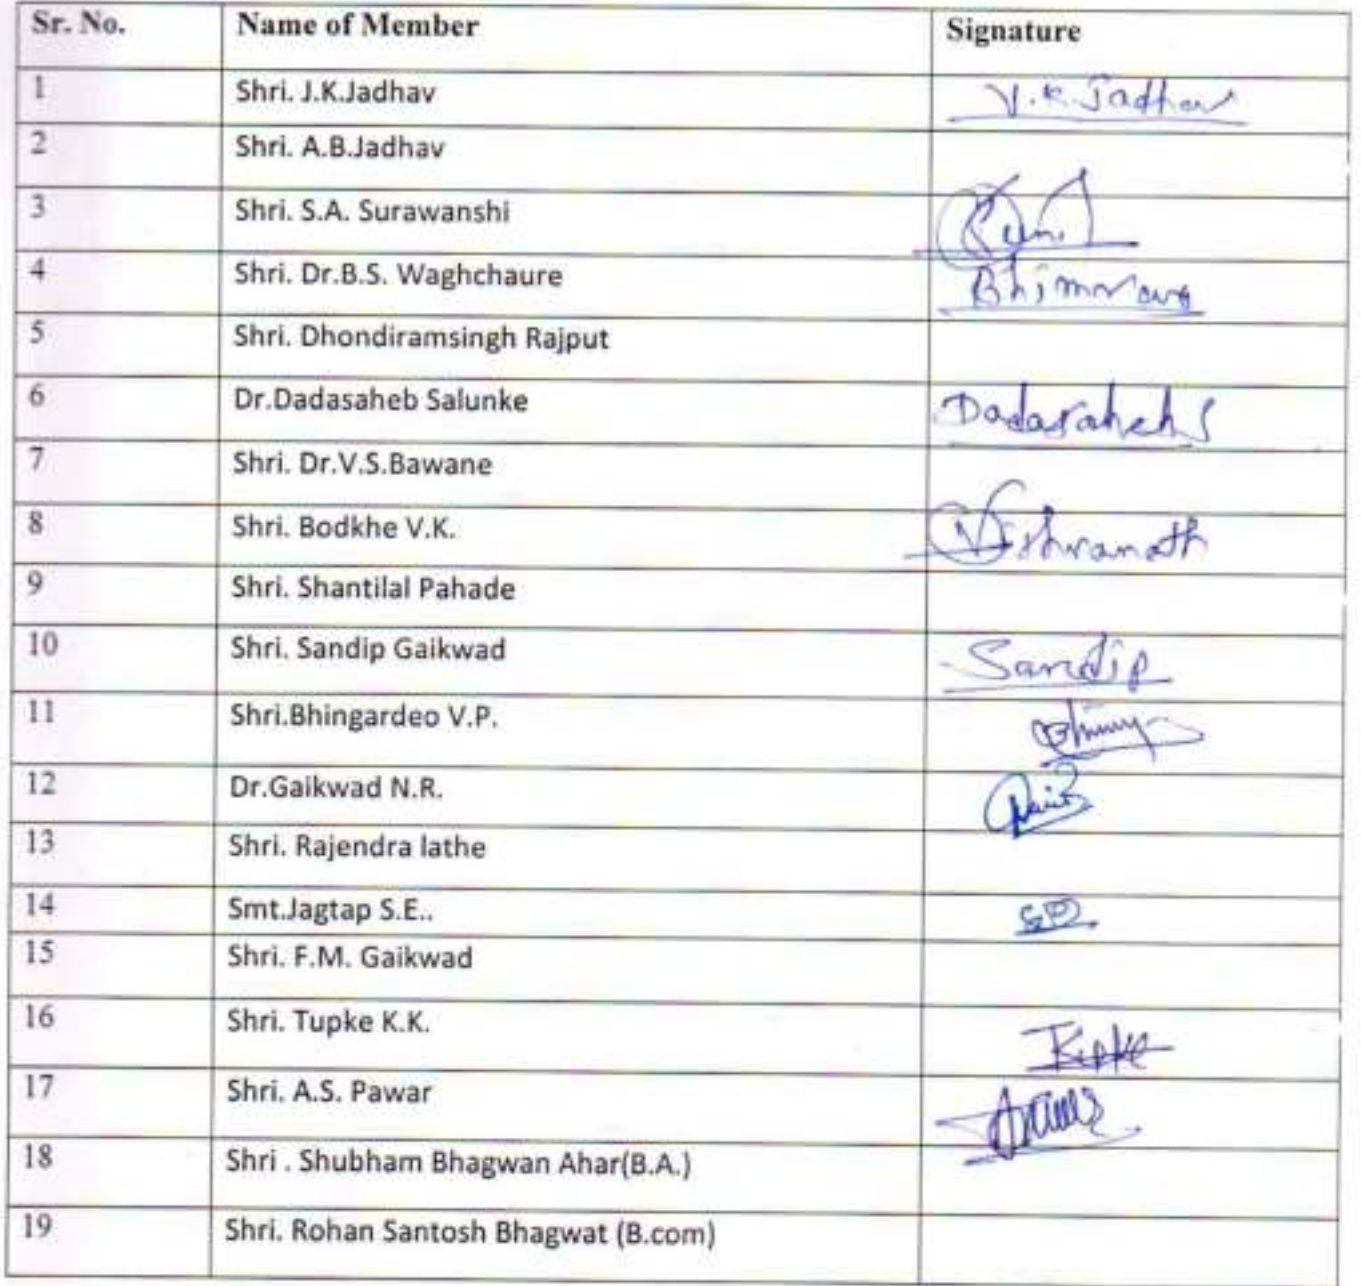 Sr. No. Name of Member Signature
1 Shri. J.K.Jadhav J.K.Jadhav
2 Shri. A.B.Jadhav
3 Shri. S.A. Surawanshi
4 Shri. Dr.B.S. Waghchaure Bhimrao
5 Shri. Dhondiramsingh Rajput
6 Dr.Dadasaheb Salunke Dadasaheb S
7 Shri. Dr.V.S.Bawane
8 Shri. Bodkhe V.K. Vishvanath
9 Shri. Shantilal Pahade
10 Shri. Sandip Gaikwad Sandip
11 Shri.Bhingardeo V.P.
12 Dr.Gaikwad N.R.
13 Shri. Rajendra lathe
14 Smt.Jagtap S.E..
15 Shri. F.M. Gaikwad
16 Shri. Tupke K.K. Tupke
17 Shri. A.S. Pawar
18 Shri . Shubham Bhagwan Ahar(B.A.)
19 Shri. Rohan Santosh Bhagwat (B.com)